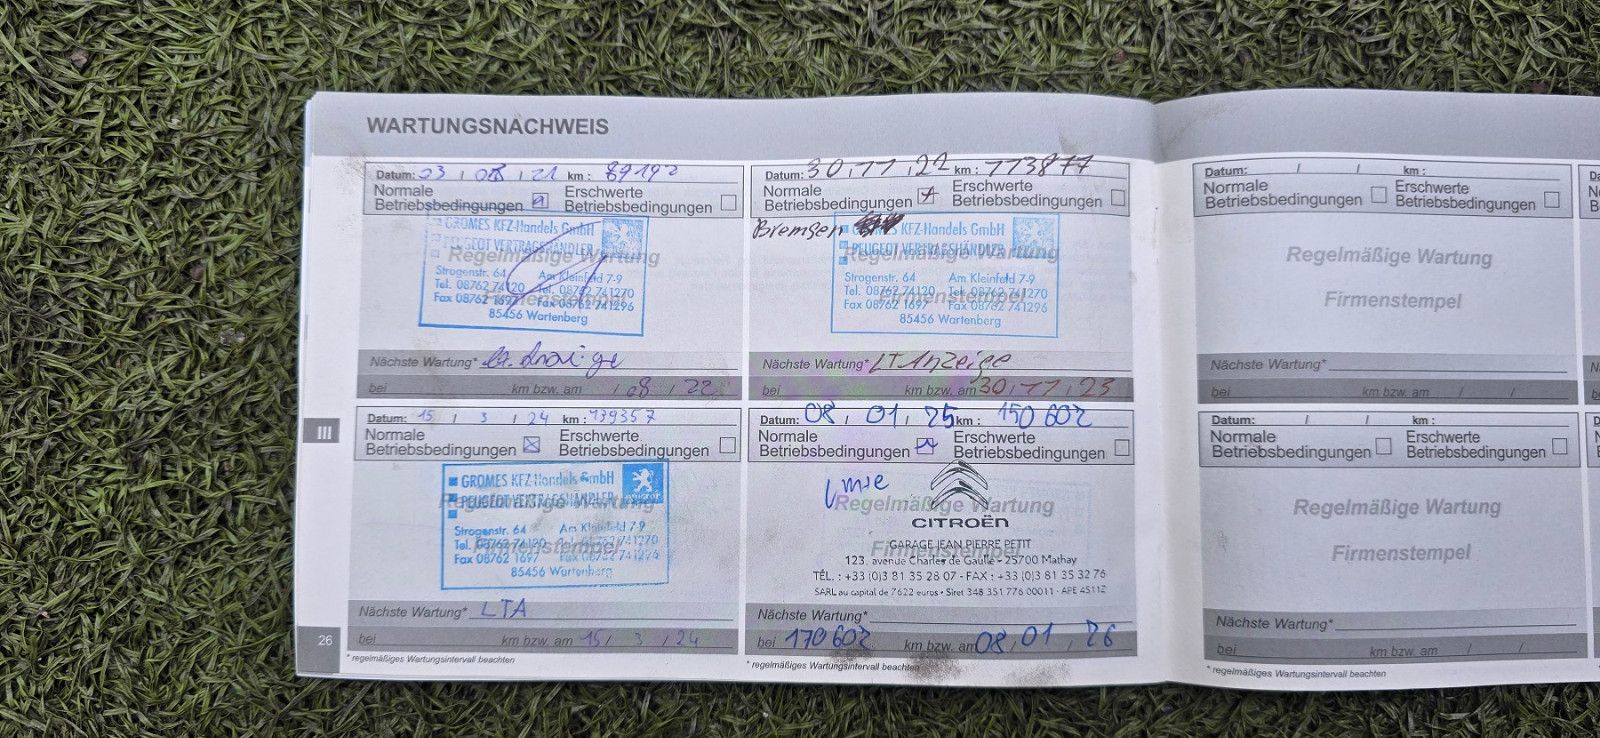 WARTUNGSNACHWEIS
Datum: 03 / 08 / 21 km : 89192
Normale
Betriebsbedingungen
Erschwerte
Betriebsbedingungen
GROMES KFZ-Handels GmbH
PEUGEOT VERTRAGSHÄNDLER
Regelmäßige Wartung
Strogenstr. 64 Am Kleinfeld 7-9
Tel. 08762 74120 Tel. 08762 741270
Firmenstempel
Fax 08762 1697 Fax 08762 741296
85456 Wartenberg
Nächste Wartung*
bei km bzw. am / 08 / 22
Datum: 30 / 11 / 22 km : 113877
Normale
Betriebsbedingungen
Erschwerte
Betriebsbedingungen
Bremsen
KFZ-Handels GmbH
PEUGEOT VERTRAGSHÄNDLER
Regelmäßige Wartung
Strogenstr. 64 Am Kleinfeld 7-9
Tel. 08762 74120 Tel. 08762 741270
Firmenstempel
Fax 08762 1697 Fax 08762 741296
85456 Wartenberg
Nächste Wartung* LT Anzeige
bei km bzw. am 30 / 11 / 23
Datum: 15 / 3 / 24 km : 139357
Normale
Betriebsbedingungen
Erschwerte
Betriebsbedingungen
GROMES KFZ-Handels GmbH
PEUGEOT VERTRAGSHÄNDLER
PEUGEOT
Regelmäßige Wartung
Strogenstr. 64 Am Kleinfeld 7-9
Tel. 08762 74120 Tel. 08762 741270
Firmenstempel
Fax 08762 1697 Fax 08762 741296
85456 Wartenberg
Nächste Wartung* LTA
bei km bzw. am 15 / 3 / 24
* regelmäßiges Wartungsintervall beachten
Datum: 08 / 01 / 25 km : 150 602
Normale
Betriebsbedingungen
Erschwerte
Betriebsbedingungen
Regelmäßige Wartung
CITROËN
GARAGE JEAN PIERRE PETIT
Firmenstempel
123, avenue Charles de Gaulle - 25700 Mathay
TÉL. : +33 (0)3 81 35 28 07 - FAX : +33 (0)3 81 35 32 76
SARL au capital de 7622 euros • Siret 348 351 776 00011 - APE 4511Z
Nächste Wartung*
bei 170 602 km bzw. am 08 / 01 / 26
* regelmäßiges Wartungsintervall beachten
III
26
Datum: / / km :
Normale
Betriebsbedingungen
Erschwerte
Betriebsbedingungen
Regelmäßige Wartung
Firmenstempel
Nächste Wartung*
bei km bzw. am / /
Datum: / / km :
Normale
Betriebsbedingungen
Erschwerte
Betriebsbedingungen
Regelmäßige Wartung
Firmenstempel
Nächste Wartung*
bei km bzw. am / /
* regelmäßiges Wartungsintervall beachten